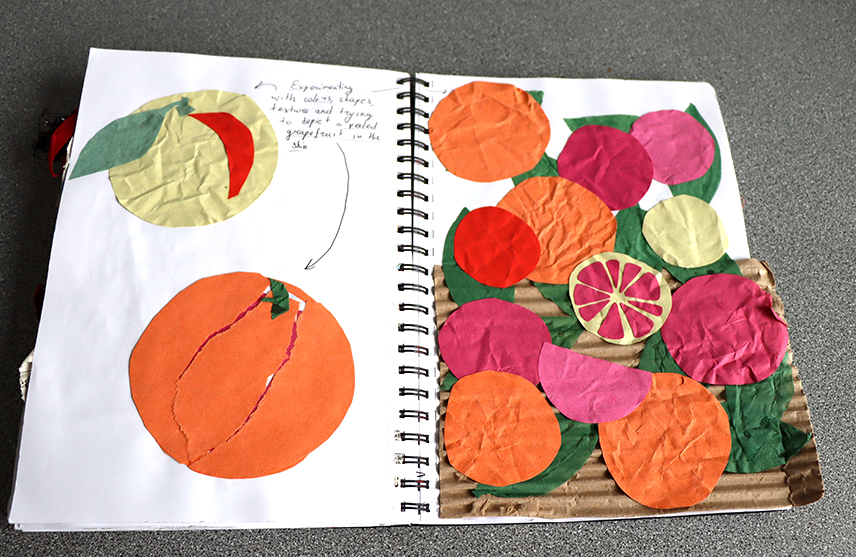 Experimenting
with colors, shapes,
texture and trying
to depict a peeled
grapefruit in the
skin